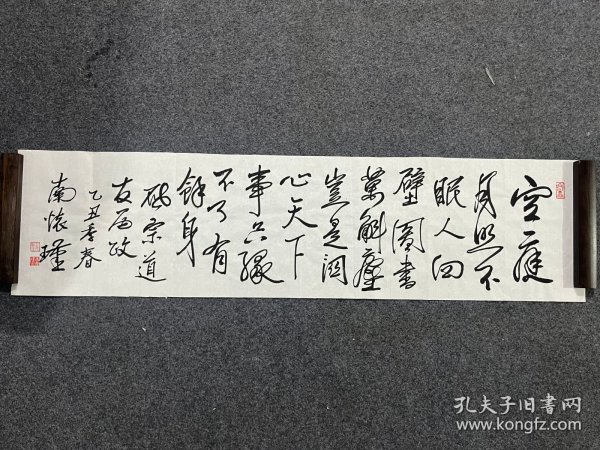 空庭
月照不
眠人四
壁圖書
萬斛塵
豈是関
心天下
事只緣
不了有
餘身
宗道
友政
乙丑季春
南懷瑾
孔夫子旧書网
www.kongfz.com